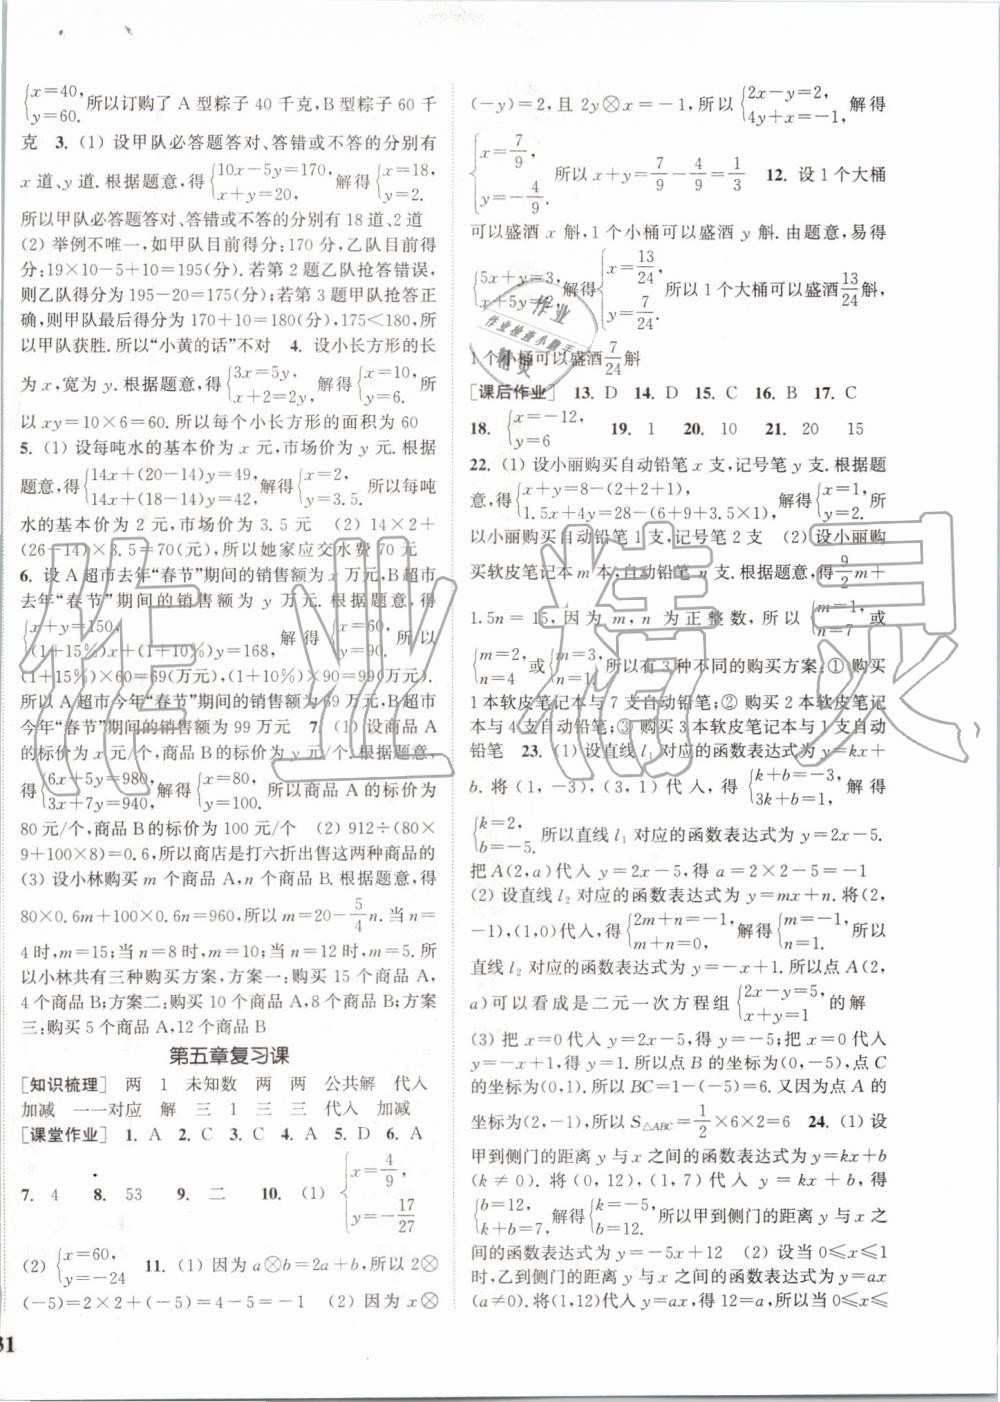 {x=40, y=60. 所以订购了 A 型粽子 40 千克,B 型粽子 60 千
克 3. (1) 设甲队必答题答对、答错或不答的分别有
x 道、y 道. 根据题意,得{10x-5y=170, x+y=20, 解得{x=18, y=2.
所以甲队必答题答对、答错或不答的分别有 18 道、2 道
(2) 举例不唯一,如甲队目前得分:170 分,乙队目前得
分:19×10-5+10=195(分). 若第 2 题乙队抢答错误,
则乙队得分:195-20=175(分);若第 3 题甲队抢答正
确,则甲队最后得分为 170+10=180(分),175<180,所
以甲队获胜. 所以“小黄的话”不对 4. 设小长方形的长
为 x,宽为 y. 根据题意,得{3x=5y, x+2=2y, 解得{x=10, y=6. 所
以 xy=10×6=60. 所以每个小长方形的面积为 60
5. (1) 设每吨水的基本价为 x 元,市场价为 y 元. 根据
题意,得{14x+(20-14)y=49, 14x+(18-14)y=42, 解得{x=2, y=3.5. 所以每吨
水的基本价为 2 元,市场价为 3.5 元 (2) 14×2+
(26-14)×3.5=70(元),所以她家应交水费 70 元
6. 设 A 超市去年“春节”期间的销售额为 x 万元,B 超市
去年“春节”期间的销售额为 y 万元. 根据题意,得
{x+y=150, (1+15%)x+(1+10%)y=168, 解得 {x=60, y=90. 所以
(1+15%)×60=69(万元),(1+10%)×90=99(万元).
所以 A 超市今年“春节”期间的销售额为 69 万元,B 超市
今年“春节”期间的销售额为 99 万元 7. (1) 设商品 A
的标价为 x 元/个,商品 B 的标价为 y 元/个. 根据题意,
得{6x+5y=980, 3x+7y=940, 解得{x=80, y=100. 所以商品 A 的标价为
80 元/个,商品 B 的标价为 100 元/个 (2) 912÷(80×
9+100×8)=0.6,所以商店是打六折出售这两种商品的
(3) 设小林购买 m 个商品 A,n 个商品 B. 根据题意,得
80×0.6m+100×0.6n=960,所以 m=20-5/4n. 当 n=
4 时,m=15;当 n=8 时,m=10;当 n=12 时,m=5. 所
以小林共有三种购买方案,方案一:购买 15 个商品 A,
4 个商品 B;方案二:购买 10 个商品 A,8 个商品 B;方案
三:购买 5 个商品 A,12 个商品 B
第五章复习课
[知识梳理] 两 1 未知数 两 两 公共解 代入
加减 一一对应 解 三 1 三 三 代入 加减
[课堂作业] 1. A 2. C 3. C 4. A 5. D 6. A
7. 4 8. 53 9. 二 10. (1) {x=4/9, y=-17/27
(2) {x=60, y=-24 11. (1) 因为 a⊗b=2a+b,所以 2⊗
(-5)=2×2+(-5)=4-5=-1 (2) 因为 x⊗
31
(-y)=2,且 2y⊗x=-1,所以{2x-y=2, 4y+x=-1, 解得
{x=7/9, y=-4/9. 所以 x+y=7/9-4/9=1/3 12. 设 1 个大桶
可以盛酒 x 斛,1 个小桶可以盛酒 y 斛. 由题意,易得
{5x+y=3, x+5y=2, 解得{x=13/24, y=7/24. 所以 1 个大桶可以盛酒13/24斛,
1 个小桶可以盛酒7/24斛
[课后作业] 13. D 14. D 15. C 16. B 17. C
18. {x=-12, y=6 19. 1 20. 10 21. 20 15
22. (1) 设小丽购买自动铅笔 x 支,记号笔 y 支. 根据题
意,得{x+y=8-(2+2+1), 1.5x+4y=28-(6+9+3.5×1), 解得{x=1, y=2. 所
以小丽购买自动铅笔 1 支,记号笔 2 支 (2) 设小丽购
买软皮笔记本 m 本,自动铅笔 n 支. 根据题意,得9/2m+
1.5n=15,因为 m,n 为正整数,所以{m=1, n=7 或
{m=2, n=4 或{m=3, n=1. 所以有 3 种不同的购买方案:① 购买
1 本软皮笔记本与 7 支自动铅笔;② 购买 2 本软皮笔记
本与 4 支自动铅笔;③ 购买 3 本软皮笔记本与 1 支自动
铅笔 23. (1) 设直线 l₁ 对应的函数表达式为 y=kx+
b. 将 (1,-3),(3,1) 代入,得 {k+b=-3, 3k+b=1, 解得
{k=2, b=-5. 所以直线 l₁ 对应的函数表达式为 y=2x-5.
把 A(2,a)代入 y=2x-5,得 a=2×2-5=-1
(2) 设直线 l₂ 对应的函数表达式为 y=mx+n. 将(2,
-1),(1,0)代入,得{2m+n=-1, m+n=0, 解得{m=-1, n=1. 所以
直线 l₂ 对应的函数表达式为 y=-x+1. 所以点 A(2,
a)可以看成是二元一次方程组{2x-y=5, x+y=1 的解
(3) 把 x=0 代入 y=2x-5,得 y=-5;把 x=0 代入
y=-x+1,得 y=1. 所以点 B 的坐标为(0,-5),点 C
的坐标为(0,1). 所以 BC=1-(-5)=6. 又因为点 A 的
坐标为(2,-1),所以 S△ABC=1/2×6×2=6 24. (1) 设
甲到侧门的距离 y 与 x 之间的函数表达式为 y=kx+b
(k≠0). 将(0,12),(1,7)代入 y=kx+b,得
{b=12, k+b=7, 解得{k=-5, b=12. 所以甲到侧门的距离 y 与 x 之
间的函数表达式为 y=-5x+12 (2) 设当 0≤x≤1
时,乙到侧门的距离 y 与 x 之间的函数表达式为 y=ax
(a≠0). 将(1,12)代入 y=ax,得 12=a,所以当 0≤x≤
作业
作业检查小助手
精灵
作业精灵